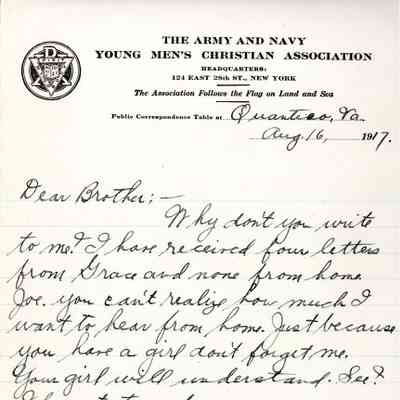 THE ARMY AND NAVY
YOUNG MEN'S CHRISTIAN ASSOCIATION
HEADQUARTERS:
124 EAST 28th ST., NEW YORK
The Association Follows the Flag on Land and Sea
Public Correspondence Table at Quantico, Va.
Aug. 16, 1917.
Dear Brother; —
Why don't you write
to me? I have received four letters
from Grace and none from home
Joe. you can't realize how much I
want to hear from home. Just because
you have a girl don't forget me.
Your girl will understand. See?